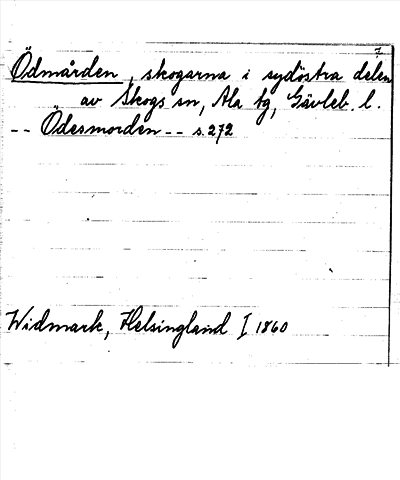 Ödmården, skogarna i sydöstra delen
av Skogs sn, Ala tg, Gävleb. l.
-- Ödesmorden -- s. 272
Widmark, Helsingland I 1860